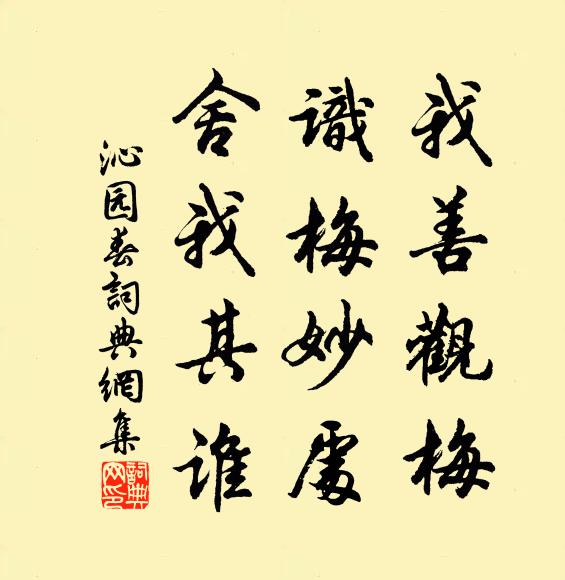 我善觀梅
識梅妙處
舍我其誰
沁园春詞典網集
詞典网印